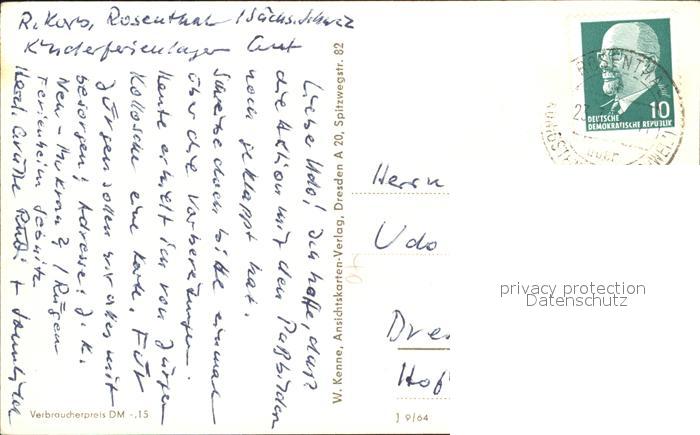 R. Korb, Rosenthal / Sächs. Schweiz
Kinderferienlager
Liebe Udo! Ich hoffe, daß
die Aktion mit den Paßbildern
noch geklappt hat.
Schreibe doch bitte einmal
über die Vorbereitungen.
Heute erhielt ich von Jürgen
eine Karte. Für
Jürgen sollen wir alles mit
besorgen! Adresse: J. K.
Neu - Mukran / Rügen
Ferienheim
Herzl. Grüße Rudi +
Verbraucherpreis DM -,15
W. Kenne, Ansichtskarten-Verlag, Dresden A 20, Spitzwegstr. 82
J 9/64
Herrn
Udo
Dre
Hof
10
DEUTSCHE
DEMOKRATISCHE REPUBLIK
ROSENTHA
23
privacy protection
Datenschutz